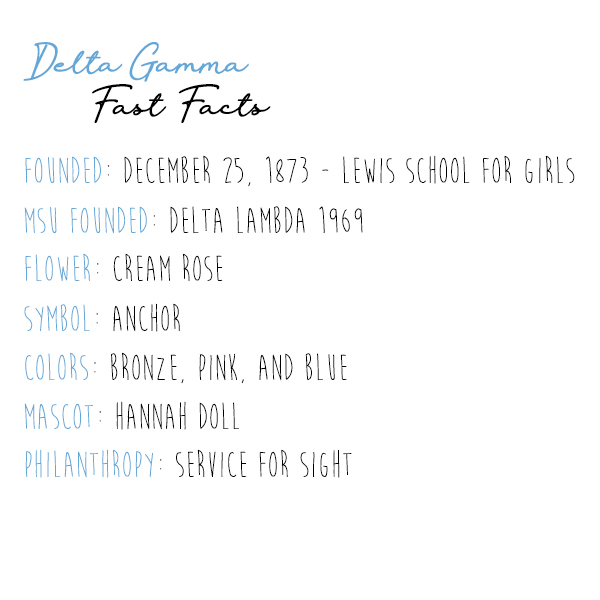 Delta Gamma
Fast Facts
FOUNDED: DECEMBER 25, 1873 - LEWIS SCHOOL FOR GIRLS
MSU FOUNDED: DELTA LAMBDA 1969
FLOWER: CREAM ROSE
SYMBOL: ANCHOR
COLORS: BRONZE, PINK, AND BLUE
MASCOT: HANNAH DOLL
PHILANTHROPY: SERVICE FOR SIGHT